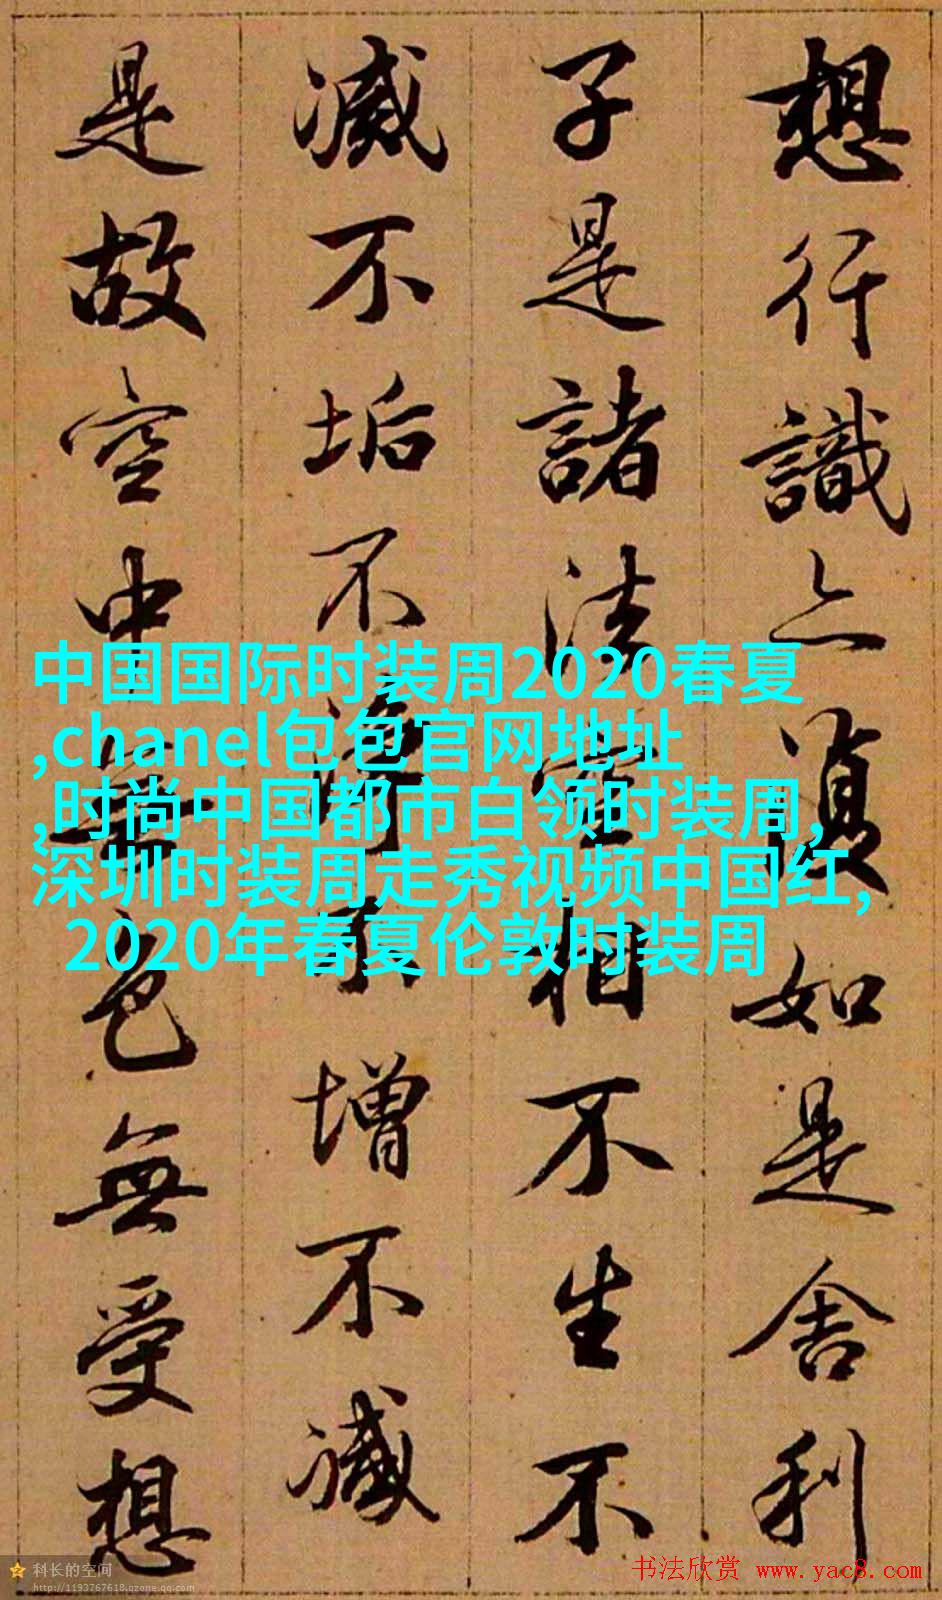 想行識亦復如是舍利
子是諸法空相不生不
滅不垢不淨不增不減
是故空中無色無受想
中国国际时装周2020春夏
,chanel包包官网地址
,时尚中国都市白领时装周,
深圳时装周走秀视频中国红,
2020年春夏伦敦时装周
科长的空间
http://1193767618.qzone.qq.com
书法欣赏 www.yac8.com